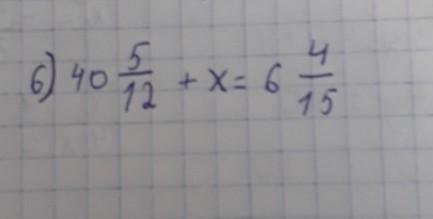 б) 40 5/12 + x = 6 4/15